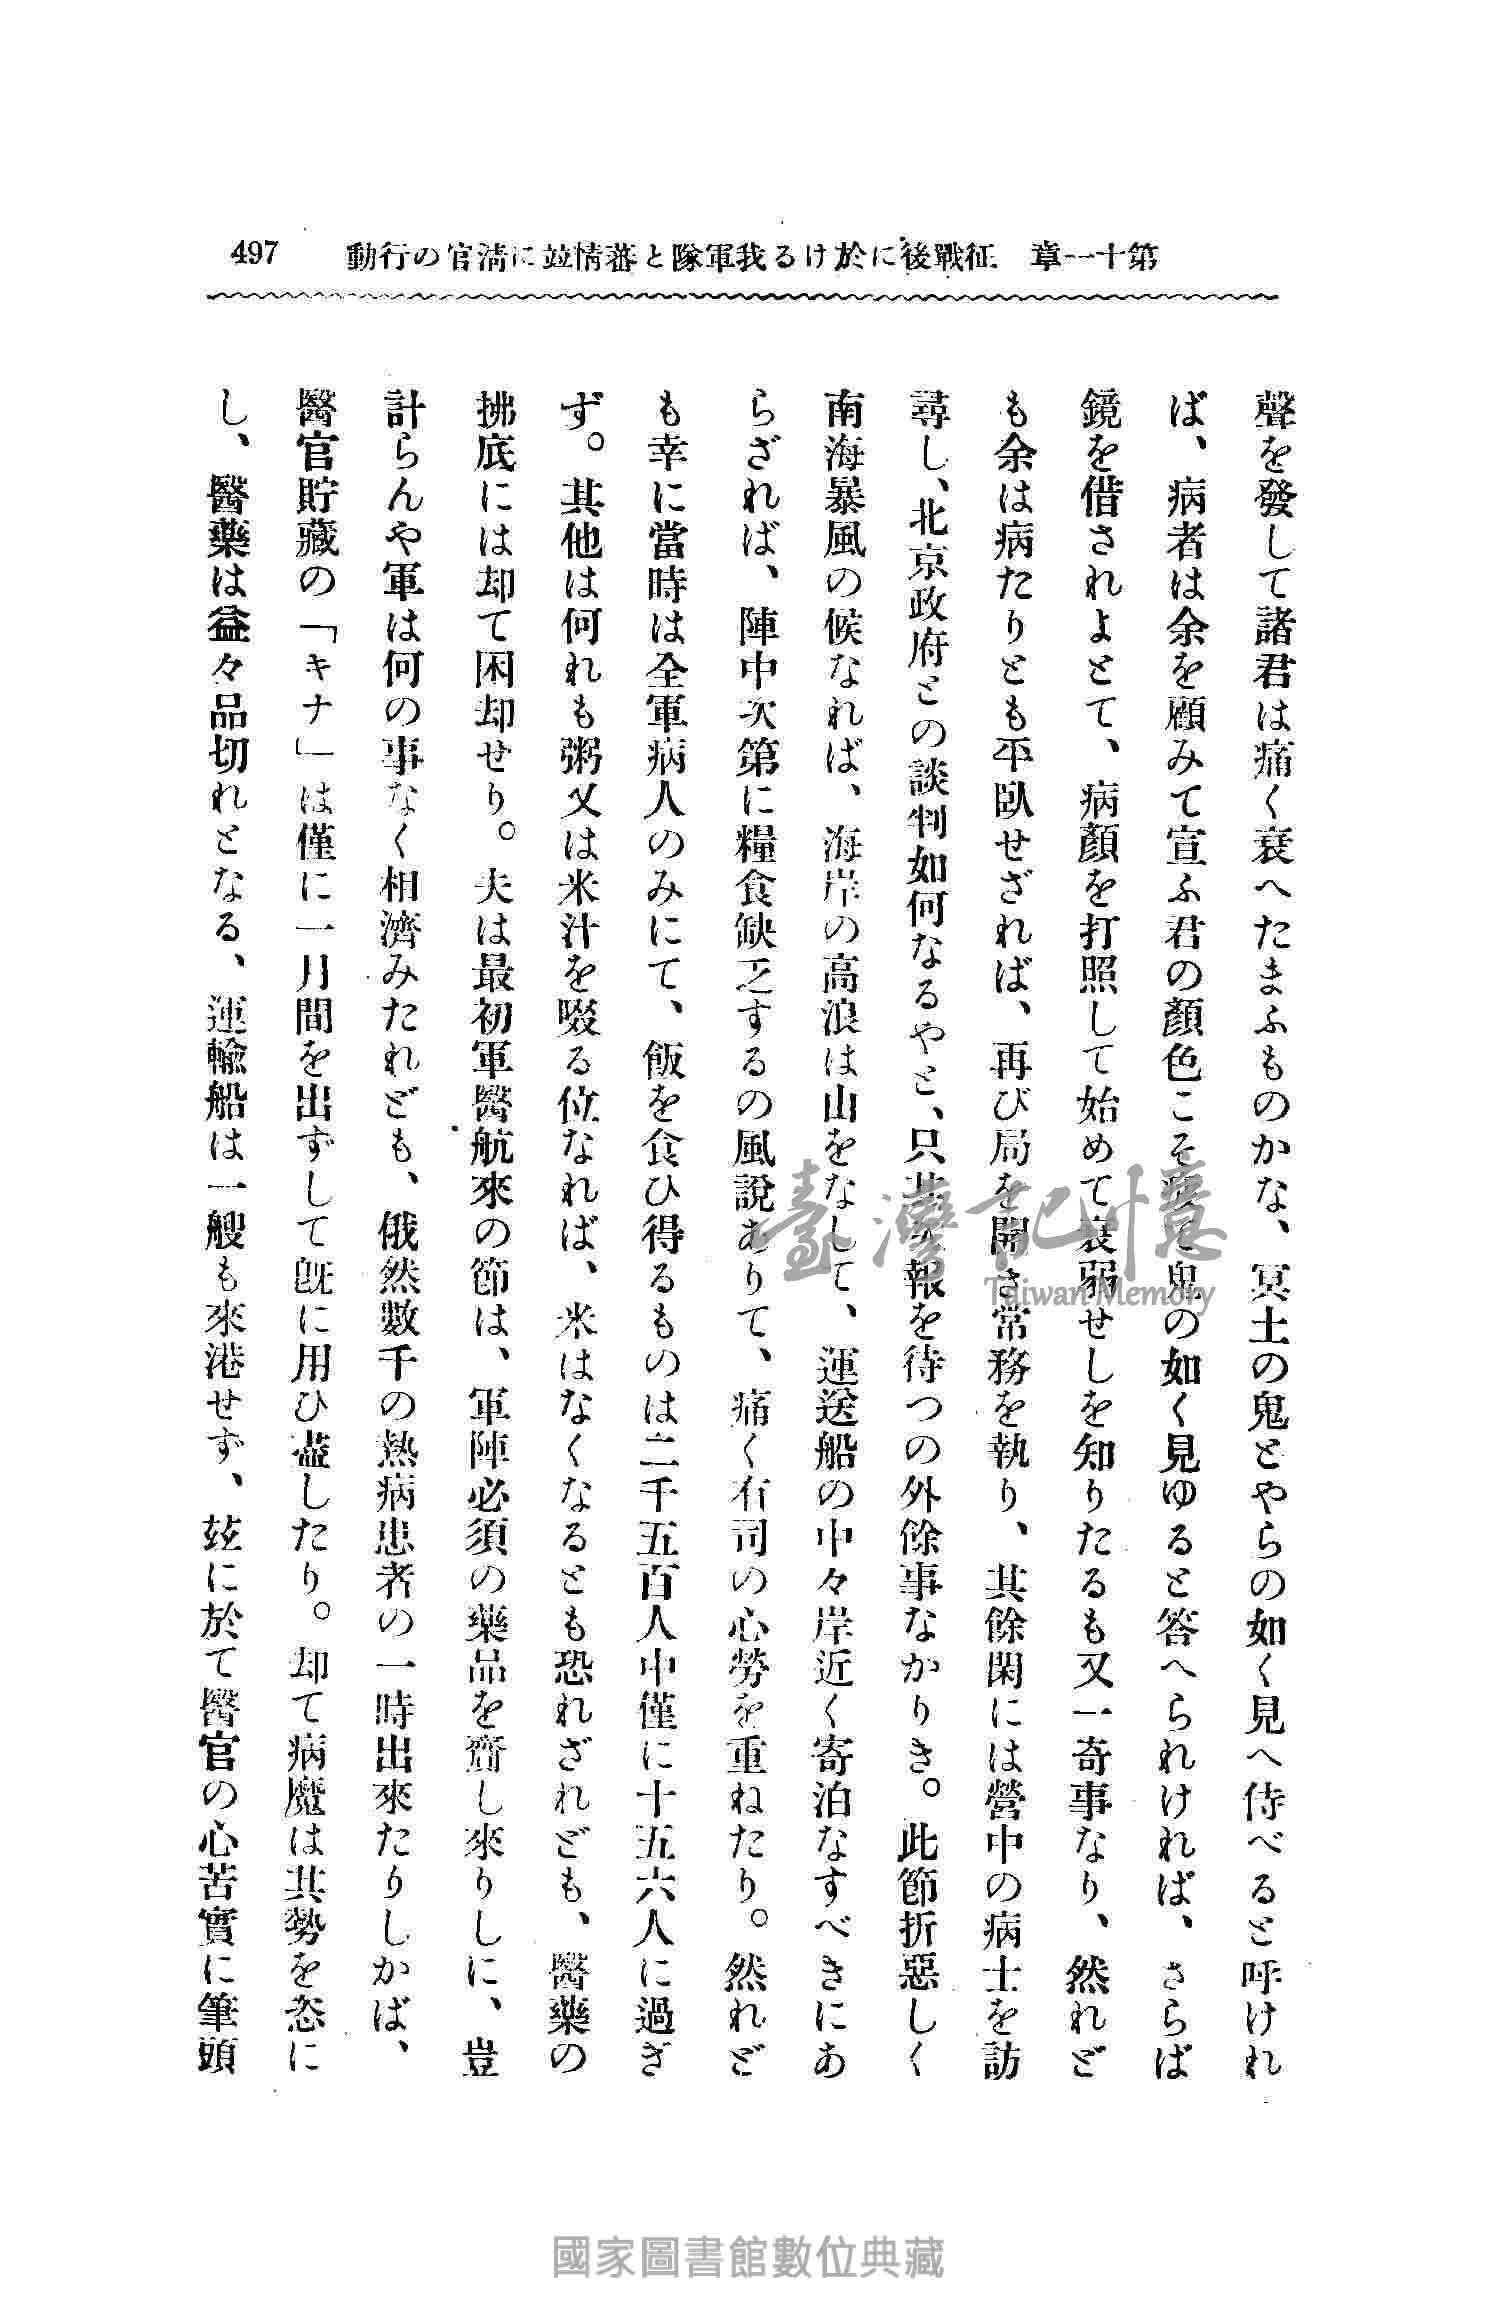 第十一章　征戰後に於ける我軍隊と蕃情竝に淸官の行動
497
聲を發して諸君は痛く衰へたまふものかな、冥土の鬼とやらの如く見へ侍べると呼けれ
ば、病者は余を顧みて宣ふ君の顏色こそ て鬼の如く見ゆると答へられければ、さらば
鏡を借されよとて、病顏を打照して始めて衰弱せしを知りたるも又一奇事なり、然れど
も余は病たりとも平臥せざれば、再び局を開き常務を執り、其餘閑には營中の病士を訪
尋し、北京政府との談判如何なるやと、只其 報を待つの外餘事なかりき。此節折惡しく
南海暴風の候なれば、海岸の高浪は山をなして、運送船の中々岸近く寄泊なすべきにあ
らざれば、陣中次第に糧食缺乏するの風說ありて、痛く有司の心勞を重ねたり。然れど
も幸に當時は全軍病人のみにて、飯を食ひ得るものは二千五百人中僅に十五六人に過ぎ
ず。其他は何れも粥又は米汁を啜る位なれば、米はなくなるとも恐れざれども、醫藥の
拂底には却て困却せり。夫は最初軍醫航來の節は、軍陣必須の藥品を齎し來りしに、豈
計らんや軍は何の事なく相濟みたれども、俄然數千の熱病患者の一時出來たりしかば、
醫官貯藏の「キナ」は僅に一月間を出ずして旣に用ひ盡したり。却て病魔は其勢を恣に
し、醫藥は益々品切れとなる、運輸船は一艘も來港せず、玆に於て醫官の心苦實に筆頭
臺灣記憶
Taiwan Memory
國家圖書館數位典藏